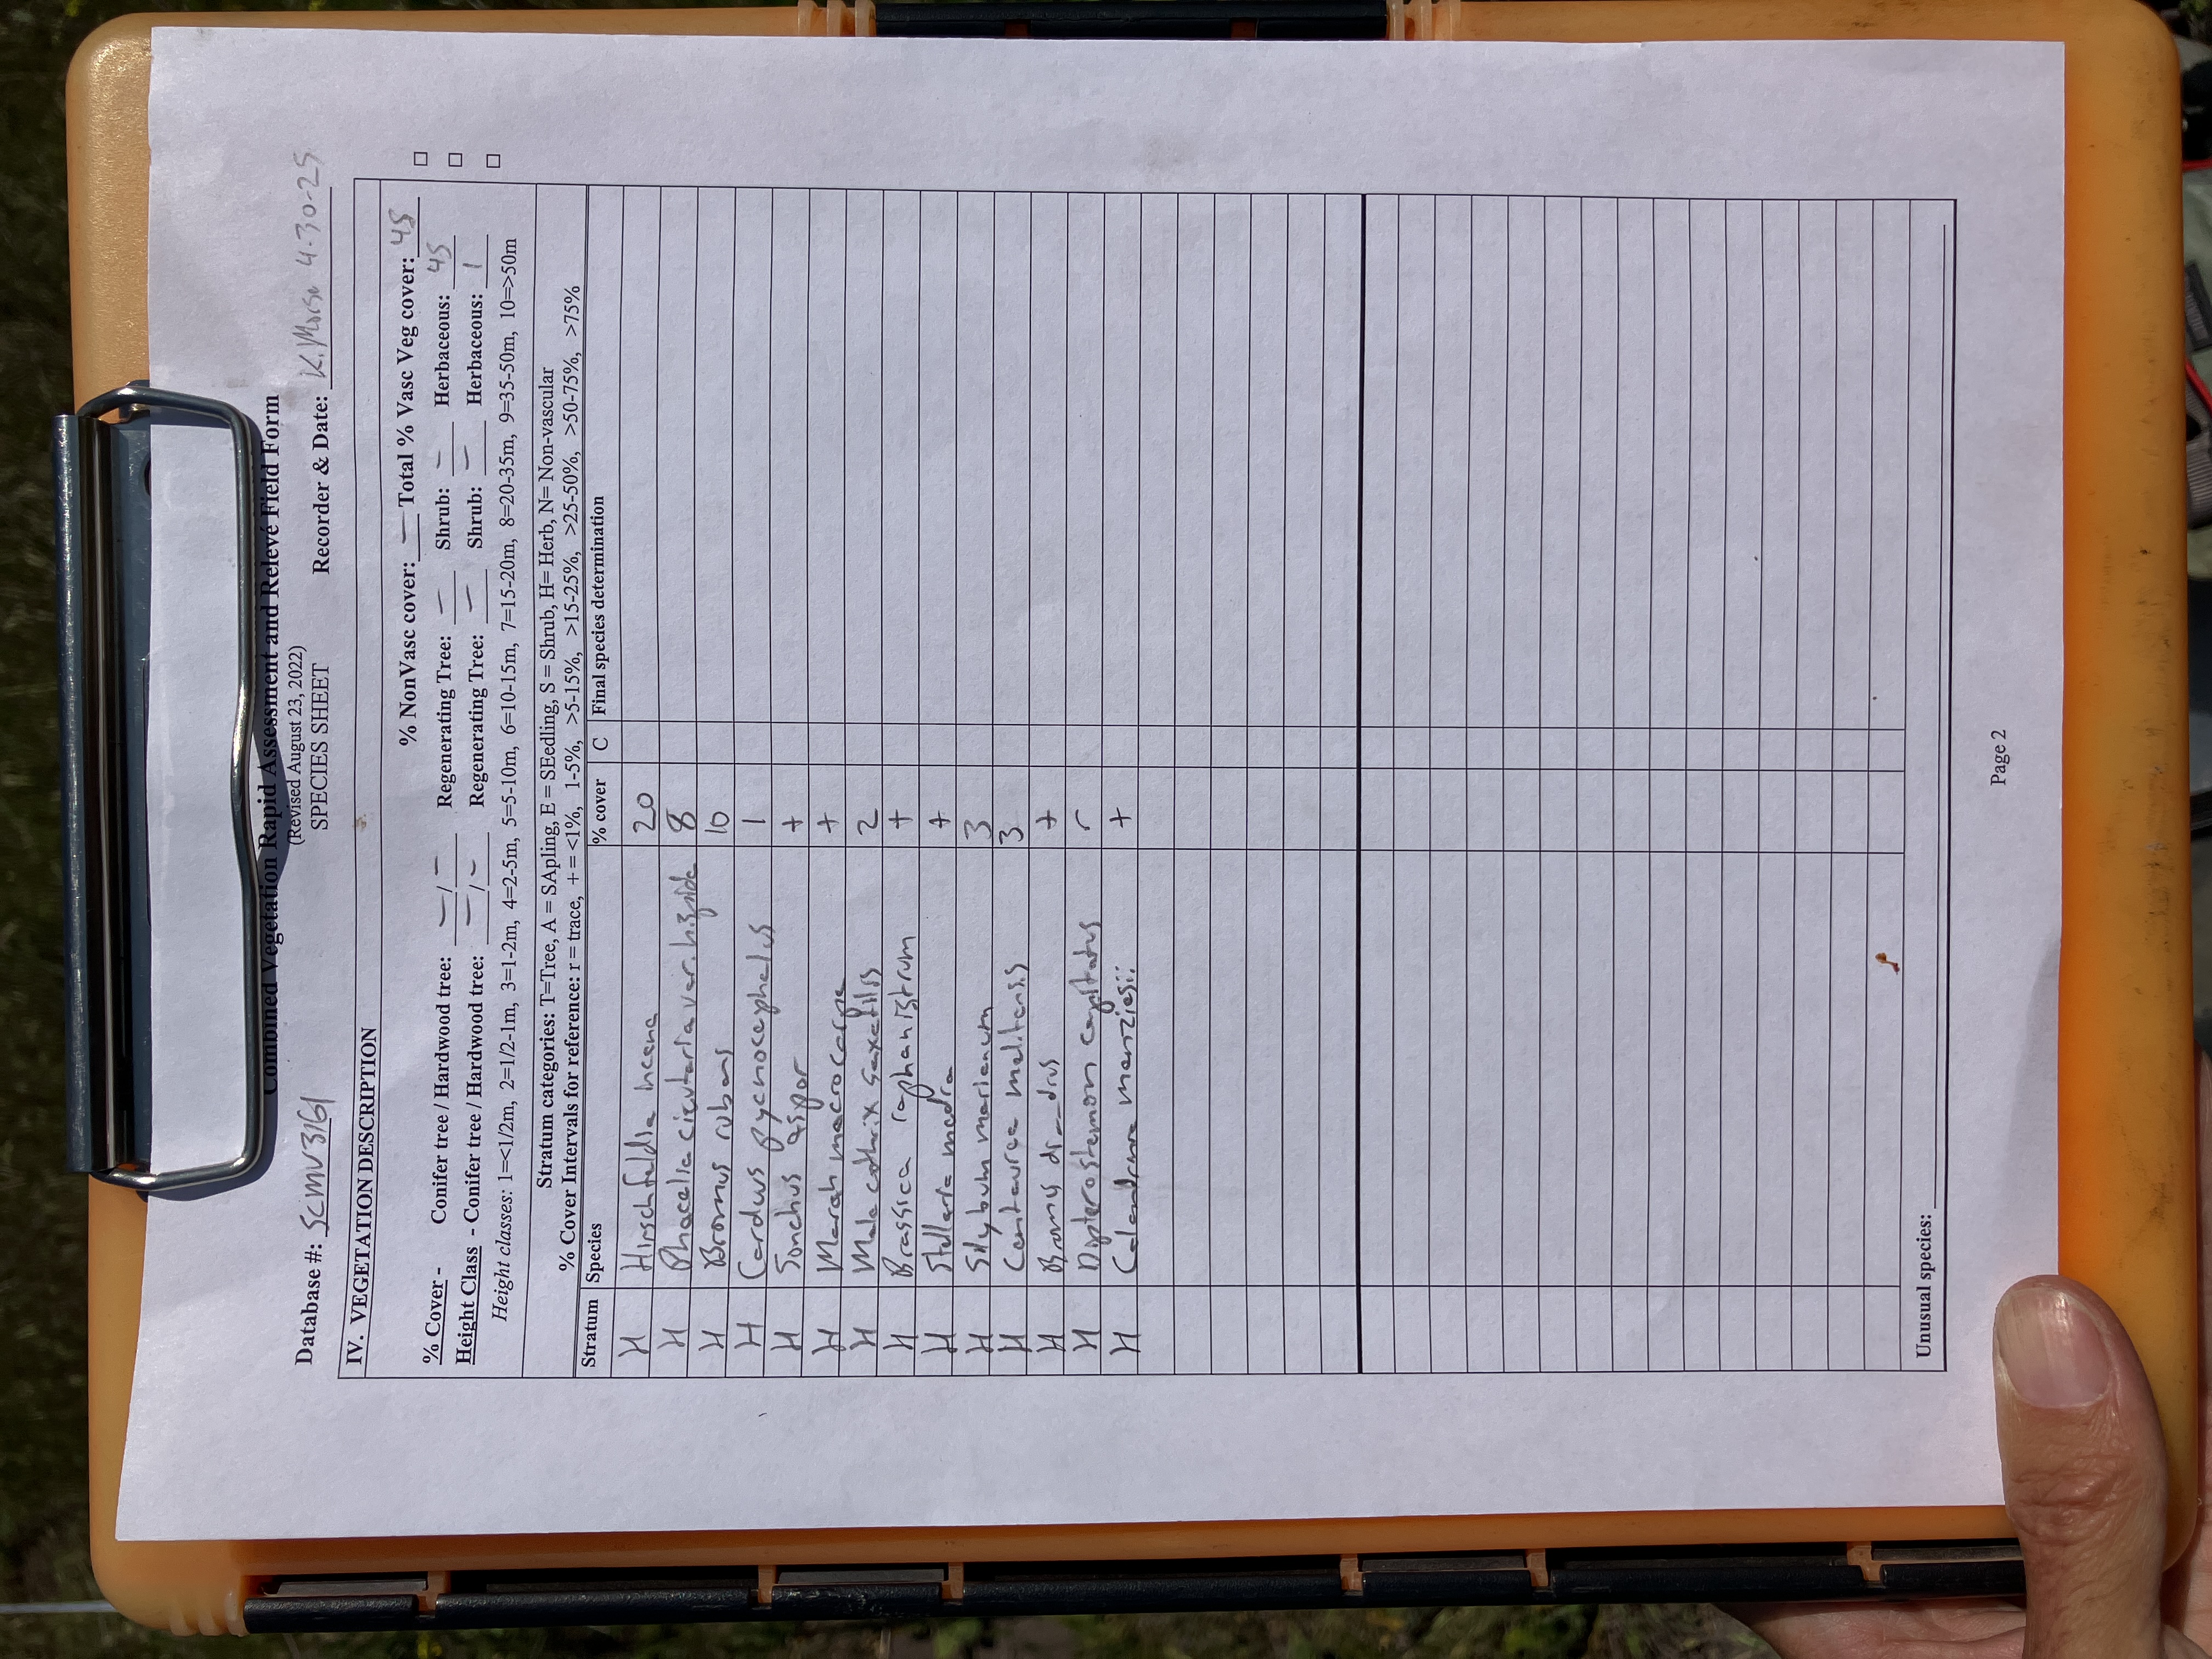 Combined Vegetation Rapid Assessment and Relevé Field Form
(Revised August 23, 2022)
SPECIES SHEET
Database #: SCMV3161 Recorder & Date: K. Morse 4-30-25
IV. VEGETATION DESCRIPTION
% NonVasc cover: — Total % Vasc Veg cover: 45
% Cover - Conifer tree / Hardwood tree: — / — Regenerating Tree: — Shrub: — Herbaceous: 45
Height Class - Conifer tree / Hardwood tree: — / — Regenerating Tree: — Shrub: — Herbaceous: 1
Height classes: 1=<1/2m, 2=1/2-1m, 3=1-2m, 4=2-5m, 5=5-10m, 6=10-15m, 7=15-20m, 8=20-35m, 9=35-50m, 10=>50m
Stratum categories: T=Tree, A = SApling, E = SEedling, S = Shrub, H= Herb, N= Non-vascular
% Cover Intervals for reference: r = trace, + = <1%, 1-5%, >5-15%, >15-25%, >25-50%, >50-75%, >75%
Stratum Species % cover C Final species determination
H Hirschfeldia incana 20
H Phacelia cicutaria var. hispida 8
H Bromus rubens 10
H Carduus pycnocephalus 1
H Sonchus asper +
H Marah macrocarpa +
H Malacothrix saxatilis 2
H Brassica raphanistrum +
H Stellaria media +
H Silybum marianum 3
H Centaurea melitensis 3
H Bromus +
H Dipterostemon capitatus r
H Calandrinia menziesii +
Unusual species:
Page 2